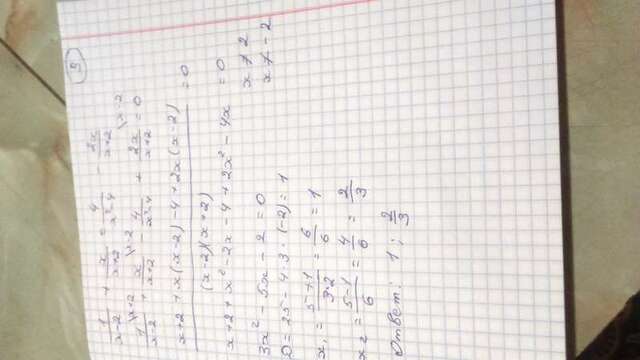 9
1/(x-2) + x/(x+2) = 4/(x²-4) - 2x/(x+2)
1/(x-2) \x+2 + x/(x+2) \x-2 - 4/(x²-4) + 2x/(x+2) \x-2 = 0
(x+2 + x(x-2) - 4 + 2x(x-2))/((x-2)(x+2)) = 0
x+2 + x² - 2x - 4 + 2x² - 4x = 0
x ≠ 2
3x² - 5x - 2 = 0
x ≠ -2
D = 25 - 4·3·(-2) = 1
x₁ = (5+1)/(3·2) = 6/6 = 1
x₂ = (5-1)/6 = 4/6 = 2/3
Ответ: 1; 2/3